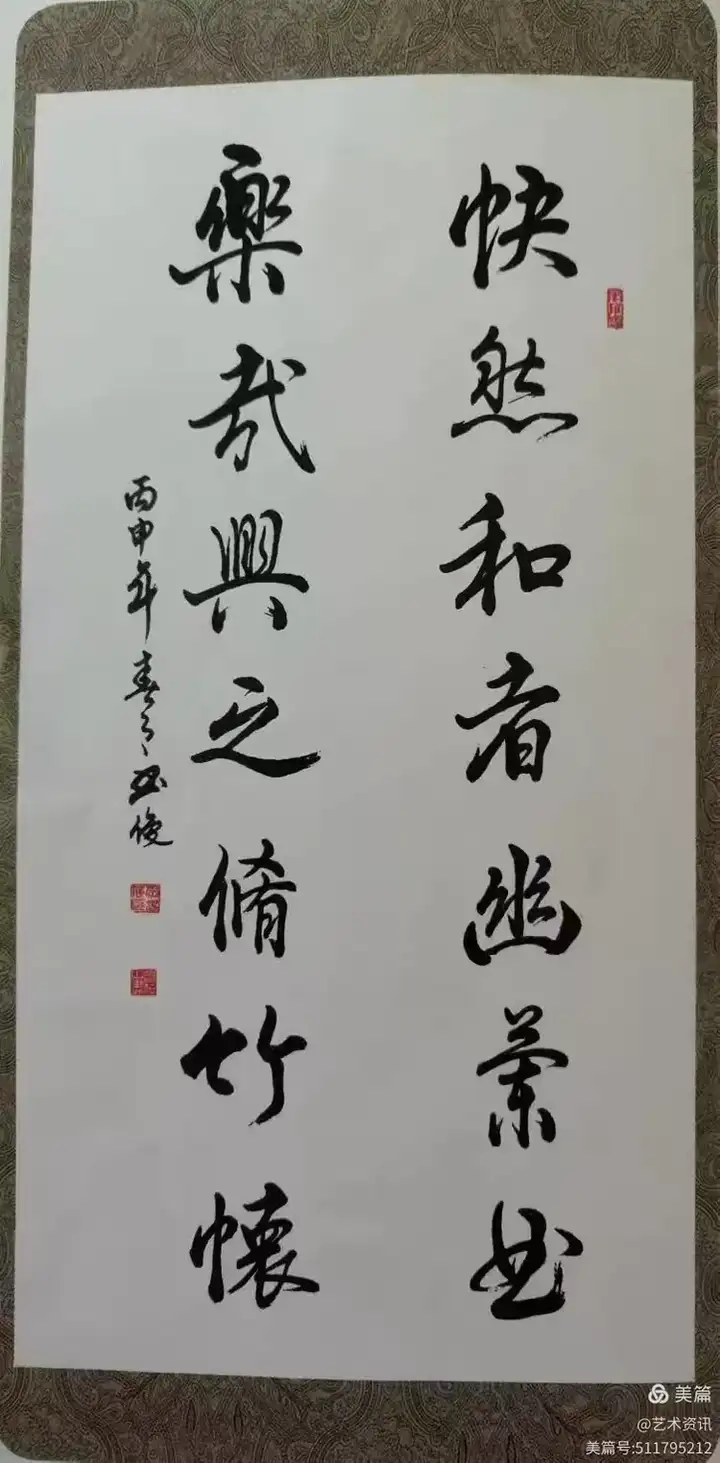 快然和者幽蘭曲
樂哉興之脩竹懷
丙申年春月亞俊
美篇
@艺术资讯
美篇号:511795212